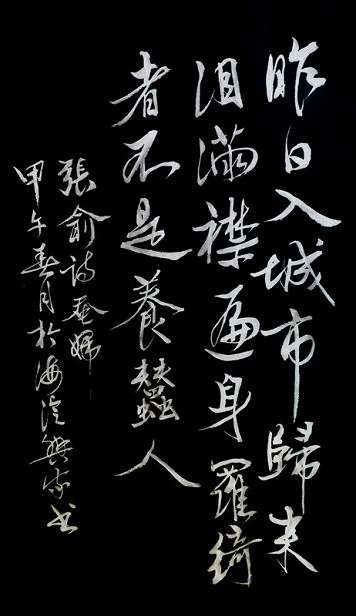 昨日入城市歸来
泪滿襟遍身羅綺
者不是養蠶人
張俞詩蚕婦
甲午春月於海淀书